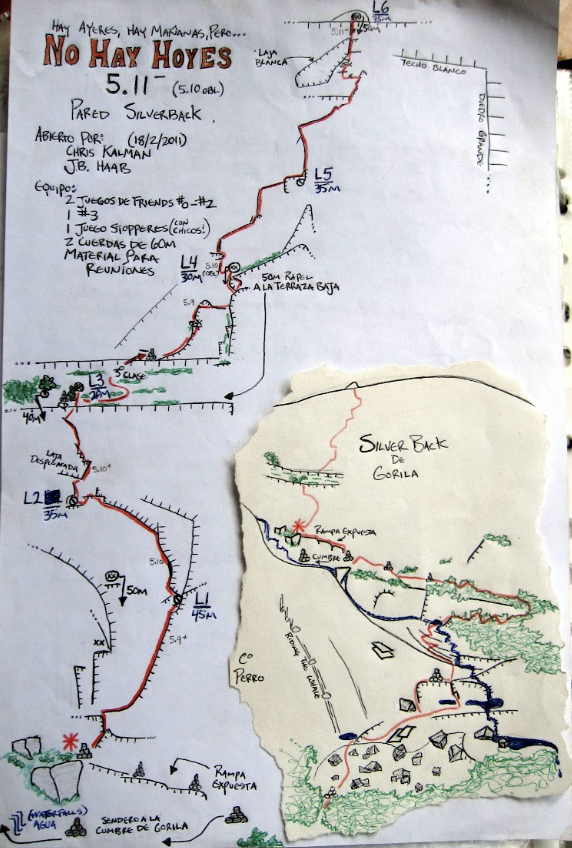 HAY AYERES, HAY MAÑANAS, PERO...
NO HAY HOYES
5.11- (5.10 OBL)
PARED SILVERBACK.
ABIERTO POR: (18/2/2011)
CHRIS KALMAN
J.B. HAAB
EQUIPO:
2 JUEGOS DE FRIENDS #0-#2
1 #3
1 JUEGO STOPPERES (CON CHICOS!)
2 CUERDAS DE 60M
MATERIAL PARA
REUNIONES
L6
35M
5.11-
LAJA
BLANCA
TECHO BLANCO
DIEDRO GRANDE
L5
35M
L4
30M
5.10
(OBL)
50M RAPEL
A LA TERRAZA BAJA
5.9
3ª CLASE
L3
20M
40M
LAJA
DESPEGADA
5.10+
L2
35M
5.10
50M
L1
45M
5.9+
XX
RAMPA
EXPUESTA
(WATERFALLS)
AGUA
SENDERO A LA
CUMBRE DE GORILA
SILVERBACK
DE
GORILA
RAMPA EXPUESTA
CUMBRE
Cº
PERRO
RIDING THE WHALE